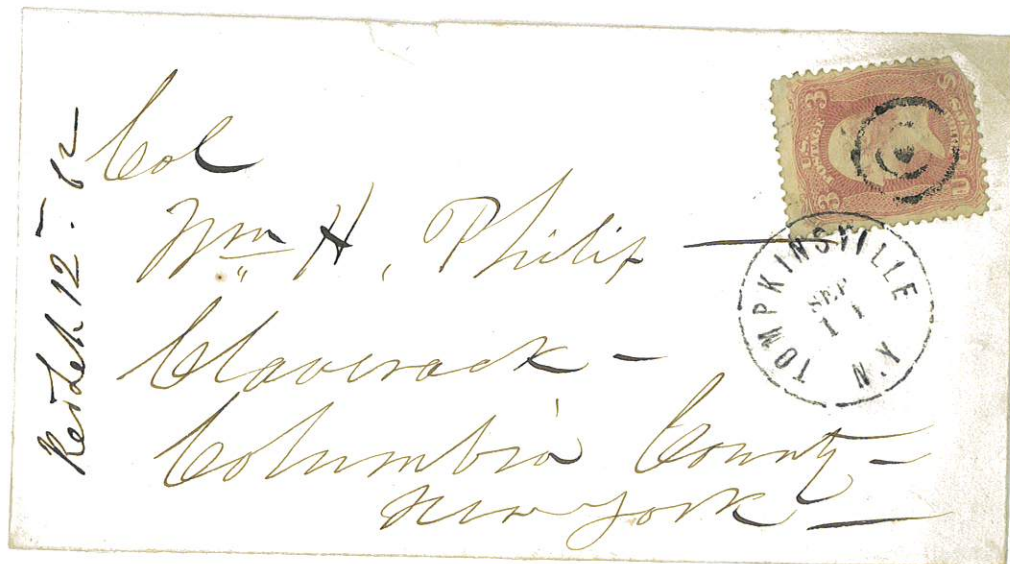 Col
Wm H. Philip
Claverack
Columbia County
New York
TOMPKINSVILLE N.Y.
SEP
11
U.S.
POSTAGE
3
3
12